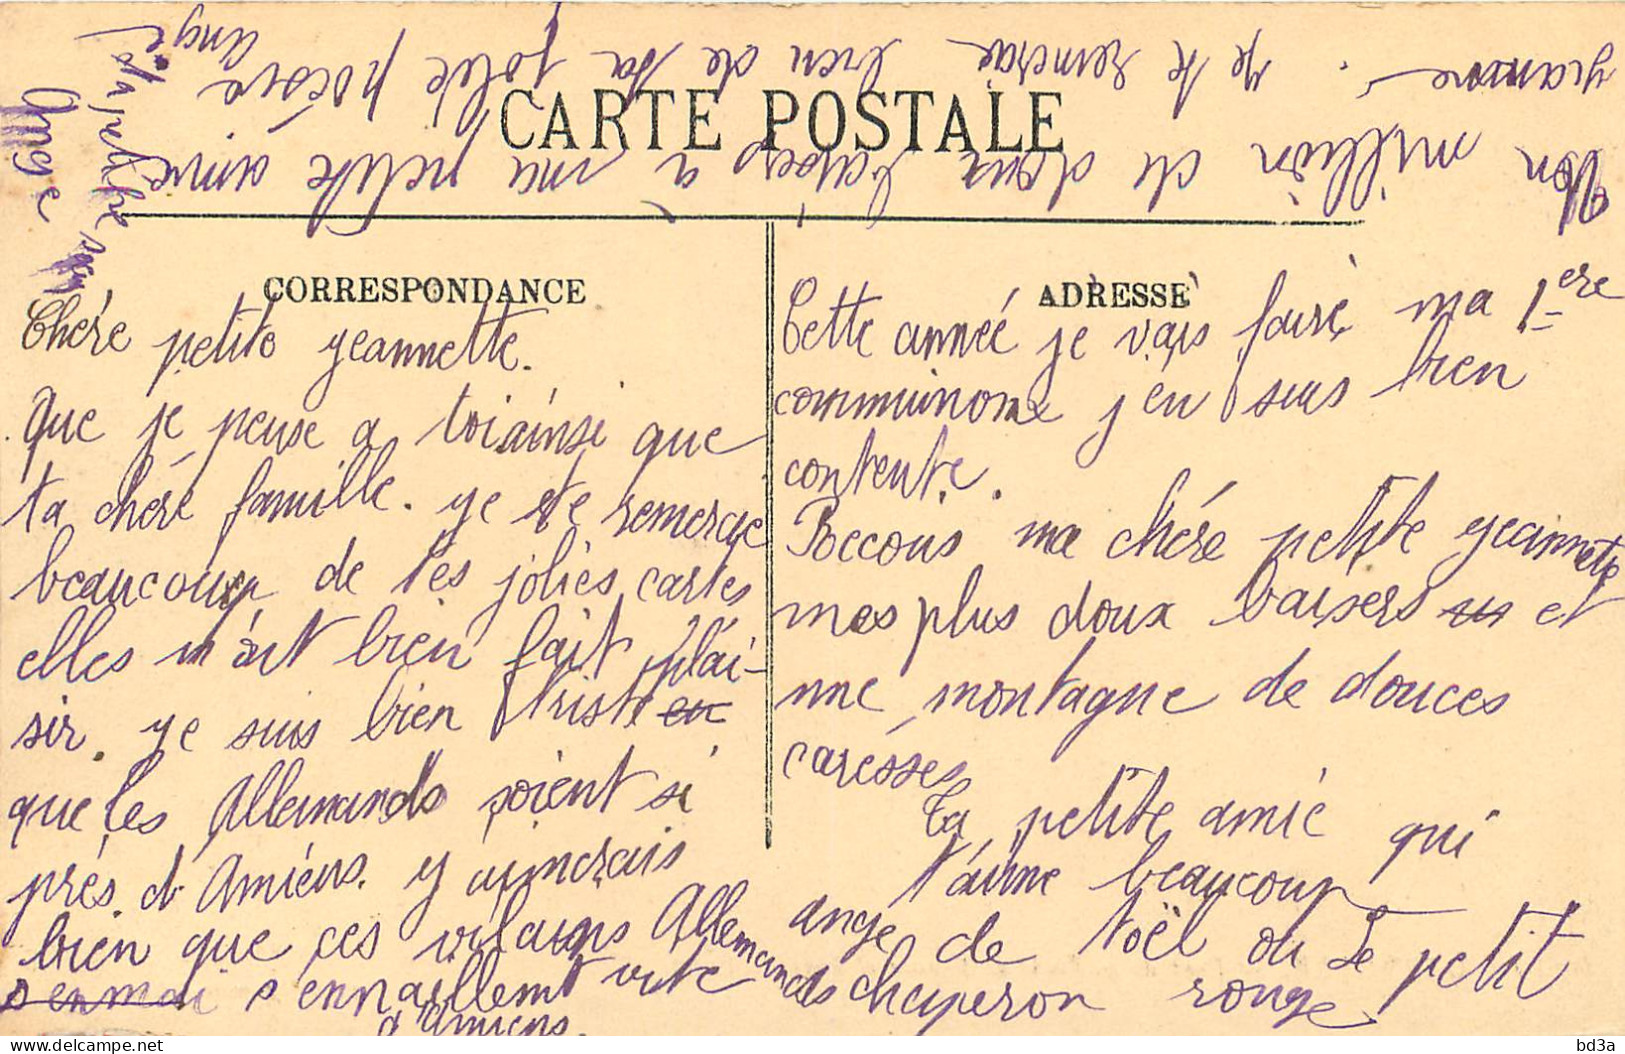 CARTE POSTALE
CORRESPONDANCE
Chére petite yeannette.
Que je pense a toi ainsi que
ta chére famille. ye te remercie
beaucoup de tes jolies cartes
elles m'ont bien fait plai-
sir. ye suis bien triste en
que les Allemands soient si
près d'Amiens. y aimerais
bien que ces vilains Allemands
s'en s'ennaillent vite
d'amiens.
ADRESSE
Cette année je vais faire ma 1ere
communion j'en suis bien
contente.
Recois ma chére petite yeannette
mes plus doux baisers et
une montagne de douces
carésses
Ta petite amie qui
t'aime beaucoup
ange de Noël ou Le petit
chaperon rouge
Un million de doux baisers a ma petite amie
yeannne. ye te remercie bien de ta jolie
ange
ta petite
Ange